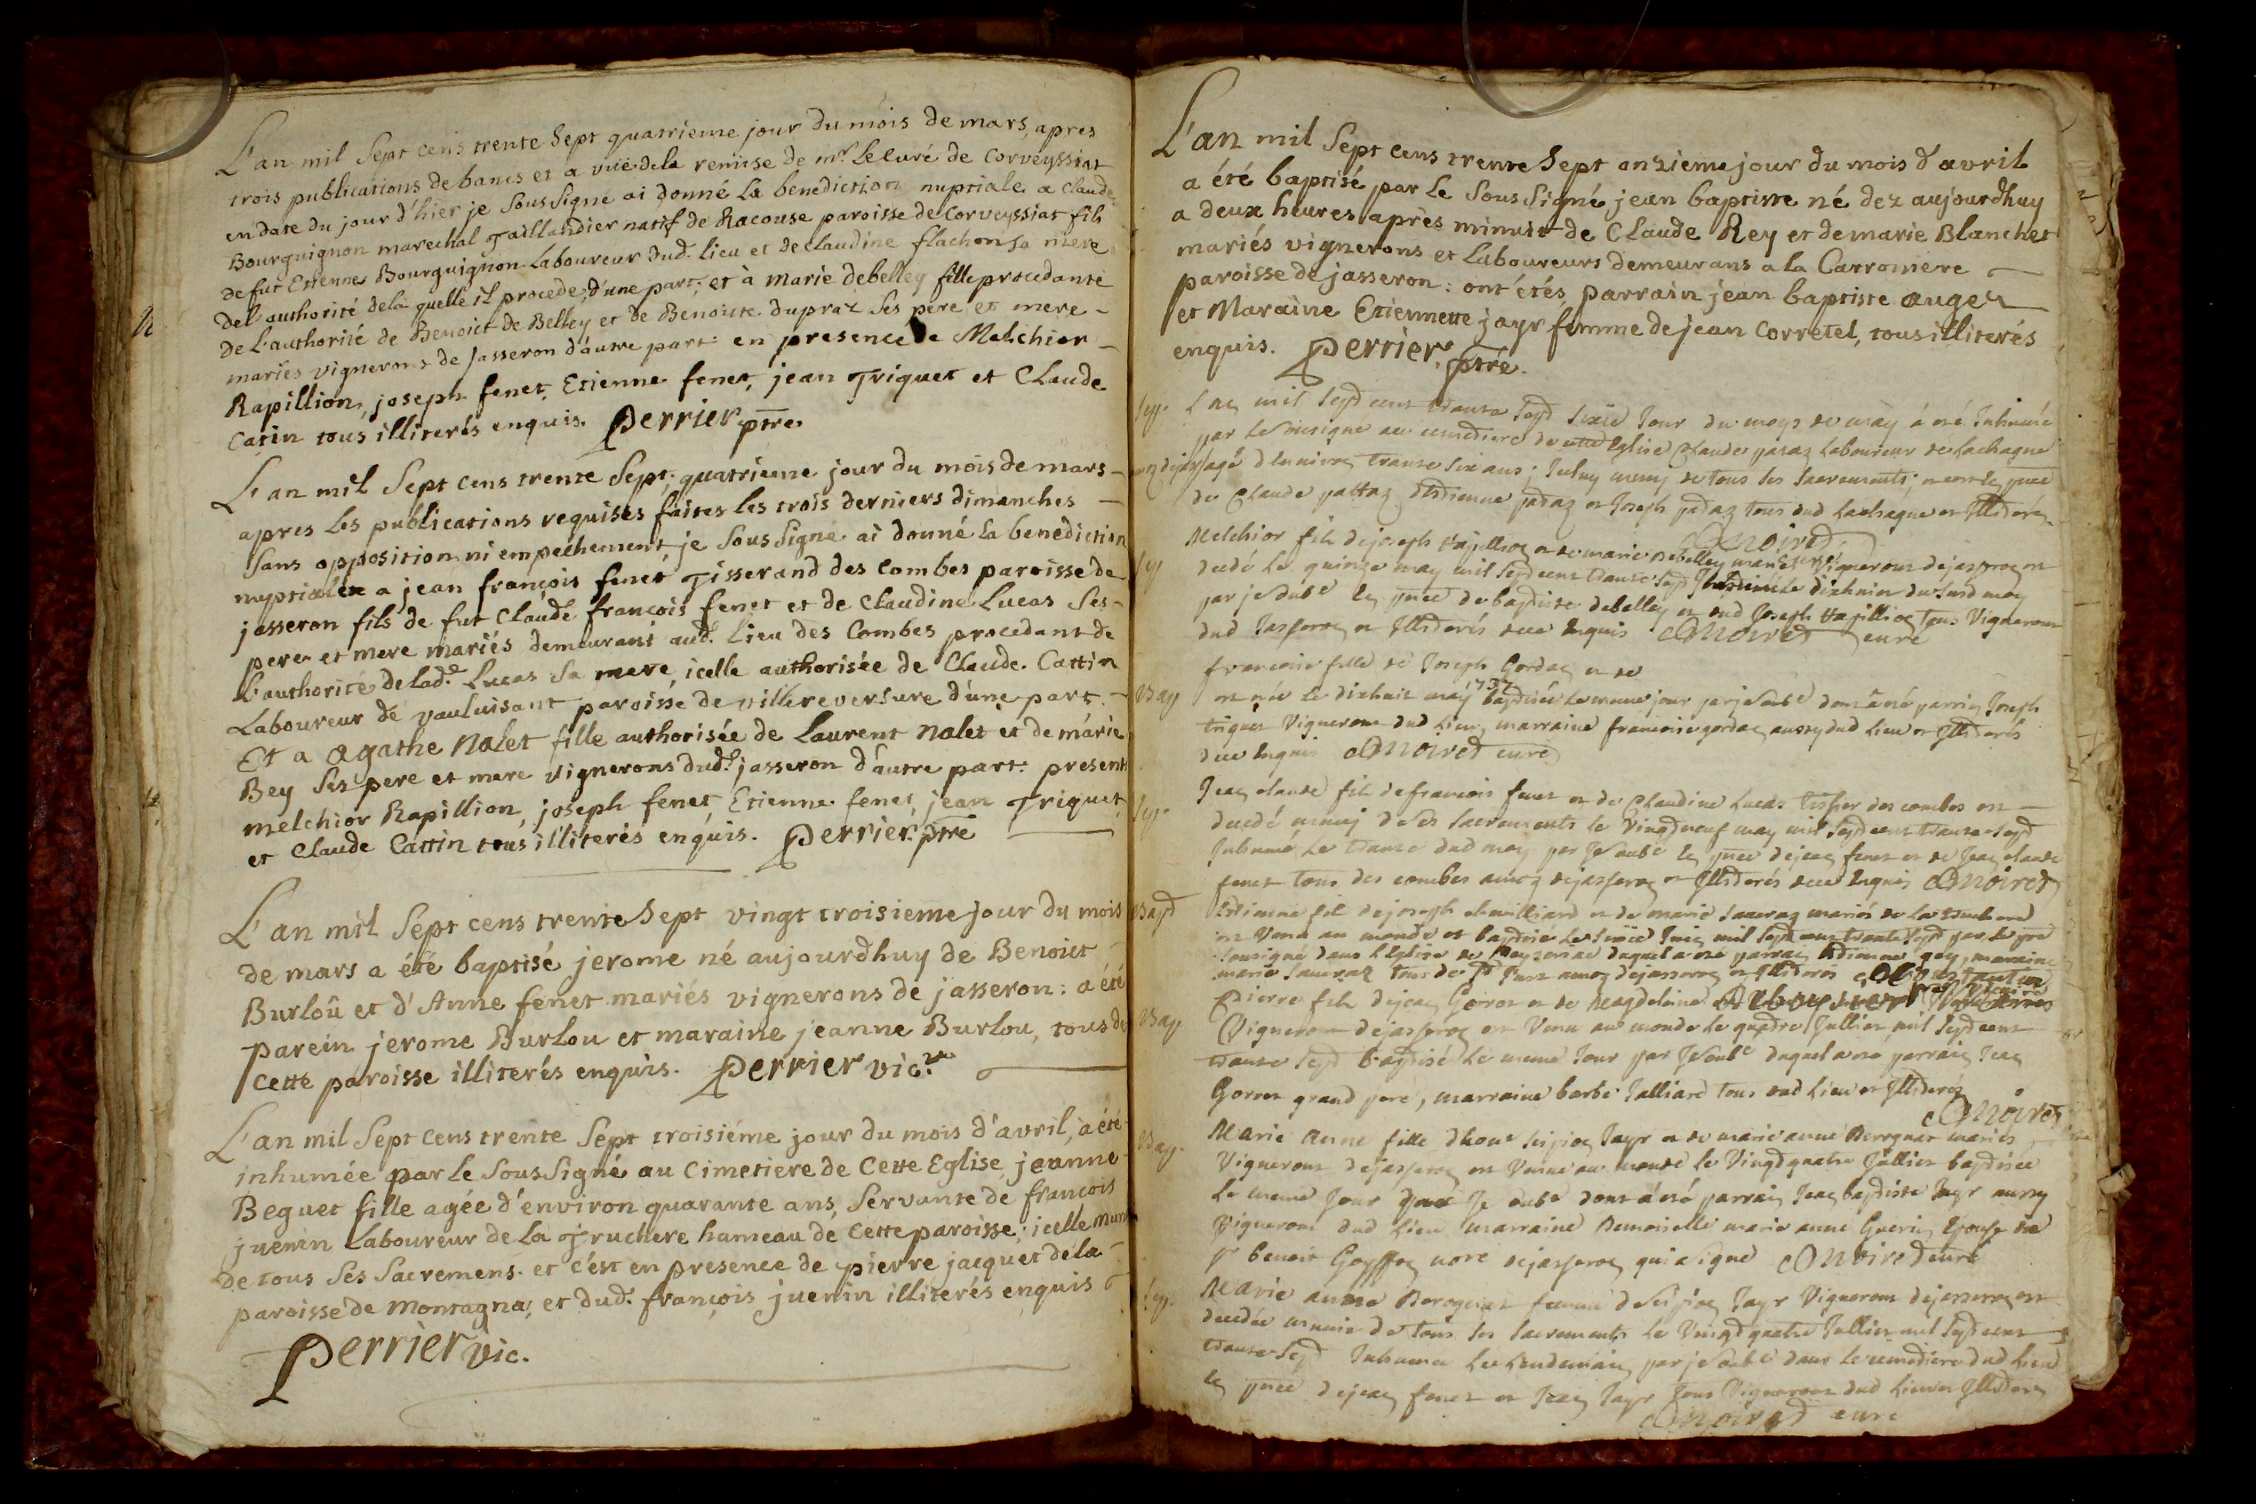 L'an mil Sept cens trente Sept quatrieme jour du mois de mars, apres
trois publications de bancs et a vüe de la remise de mr. Le Curé de Corveyssiat
en date du jour d'hier je Soussigné ai donné La benediction nuptiale a Claude
Bourguignon marechal Taillandier natif de Racouse paroisse de Corveyssiat fils
de fut Etienne Bourguignon Laboureur dud. lieu et de Claudine flachon sa mere
de l'authorité de la quelle il procede, d'une part; et à Marie debelley fille procedante
de L'authorité de Benoict de Belley et de Benoite dupraz Ses pere et mere -
mariés vignerons de Jasseron d'autre part en presence de Melchior -
Rapillion, joseph fenet, Etienne fenet, jean Triquet et Claude
Catin tous illiterés enquis. Perrier ptre.
L'an mil Sept cens trente Sept quatrieme jour du mois de mars -
apres les publications requises faites les trois derniers dimanches -
Sans opposition ni empechement, je Soussigné ai donné la benediction
nuptiale a jean françois fenet Tisserand des Combes paroisse de
jasseron fils de fut Claude françois fenet et de Claudine Lucas Ses -
pere et mere mariés demeurans aud. Lieu des Combes procedant de
L'authorité de Lad.e Lucas Sa mere, icelle authorisée de Claude Cattin
Laboureur de vauluisant paroisse de villereversure d'une part. -
Et a Agathe Nalet fille authorisée de Laurent Nalet et de marie
Bey Ses pere et mere vignerons dud. jasseron d'autre part. present
melchior Rapillion, joseph fenet, Etienne fenet, jean Triquet
et Claude Cattin tous illiterés enquis. Perrier ptre
L'an mil Sept cens trente Sept vingt troisieme jour du mois
de mars a été baptisé jerome né aujourdhuy de Benoict -
Burloû et d'Anne fenet mariés vignerons de jasseron: a été
parein jerome Burlou et maraine jeanne Burlou, tous de
Cette paroisse illiterés enquis. Perrier vic.re
L'an mil Sept cens trente Sept troisiéme jour du mois d'avril, a été
inhumée par le Soussigné au Cimetiere de Cette Eglise jeanne
Beguet fille agée d'environ quarante ans, Servante de françois
juenin Laboureur de La Truchere hameau de Cette paroisse; icelle munie
de tous Ses Sacremens. et c'est en presence de pierre jacquet de la -
paroisse de Montagna; et dud. françois juenin illiterés enquis
Perrier vic.
L'an mil Sept cens trente Sept onzieme jour du mois d'avril
a été baptisé par Le Soussigné jean baptiste né dez aujourdhuy
a deux heures après minuit de Claude Rey et de marie Blanchet
mariés vignerons et Laboureurs demeurans a la Carroniere
paroisse de jasseron: ont étés parrain jean baptiste auger
et Maraine Etiennette jayr femme de jean Corretel, tous illiterés
enquis. Perrier, ptre.
mil sept cent trente sept Jour du moys de may a été Inhumée
par Le Soussigné au cimetiere de Eglise Claude Laboureur de Lachagne
agé trente six ans; muny de tous les Sacrements;
de Claude et Joseph tous dud Lachagne et Illiterés
CMoiret
Melchior fils de joseph Rapillion et de marie debelley mariés vignerons de jasseron
decedé Le quinze may mil sept cent trente sept Le dixhuit dud moy
par je Soubé de baptiste debelley et dud Joseph Rapillion tous vignerons
dud Jasseron et Illiterés enquis CMoiret curé
francoise fille de Joseph Gordan et de
est née Le dixhuit may 1737 baptisée Le meme jour par je Soubé dont a été parrin Joseph
triquet vigneron dud Lieu, marraine francoise gordan aussy dud Lieu et Illiterés
enquis CMoiret curé
Jean claude fils de francois fenet et de Claudine Lucas des combes est
decedé muny de Ses Sacrements le vingt neuf may mil sept cent trente sept
Inhumé Le trente dud moy par Je Soubé de jean fenet et de Jean claude
fenet tous des combes de jasseron et Illiterés enquis CMoiret
Estienne fils de joseph et de marie mariés de
est venu au monde et baptisé Le Juin mil sept cent trente sept par Le
Sousigné dans L'Eglise de a été parrin Estienne marraine
marie tous de jasseron et Illiterés
Pierre fils de jean Gorron et de magdelaine
vigneron de jasseron est venu au monde Le quatre Juillet mil sept cent
trente sept baptisé Le meme Jour par Je Soubé duquel a été parrain Jean
Gorron grand pere, marraine barbe Julliard tous dud Lieu et Illiterés
CMoiret
Marie Anne fille Jayr et de marie anne mariés
vignerons de jasseron est venue au monde le vingt quatre Juillet baptisée
Le meme Jour Je Soubé dont a été parrain Jean baptiste Jayr aussy
vigneron dud Lieu marraine Demoiselle marie anne Guerin Epouse de
Sr benoit Goyffon de jasseron qui a signé CMoiret curé
Marie anne femme de Jayr vigneron de jasseron est
decedée munie de tous les Sacrements Le vingt quatre Juillet mil sept cent
trente sept Inhumée Le Lendemain par je Soubé dans Le cimetiere dud Lieu
de jean fenet et Jean Jayr tous vignerons dud Lieu et Illiterés
CMoiret curé